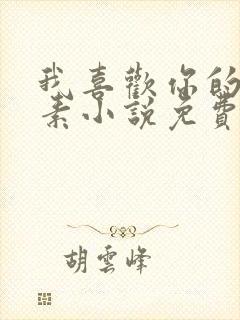 我喜歡你的
素小說免費
胡雲峰